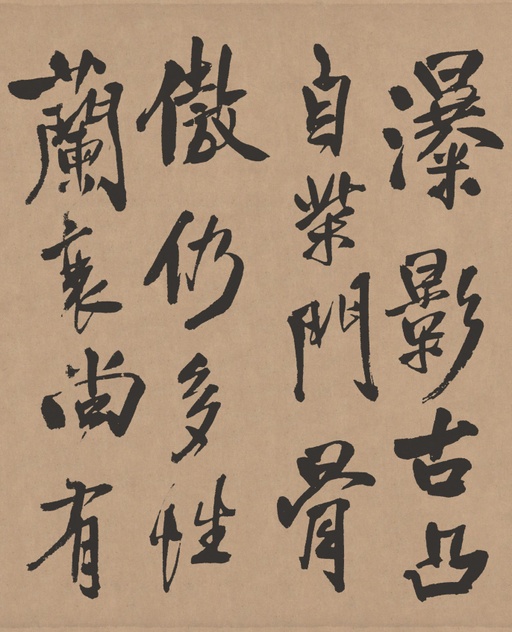 瀑影古凸
自柴門骨
傲仍多性
蘭衰尚有